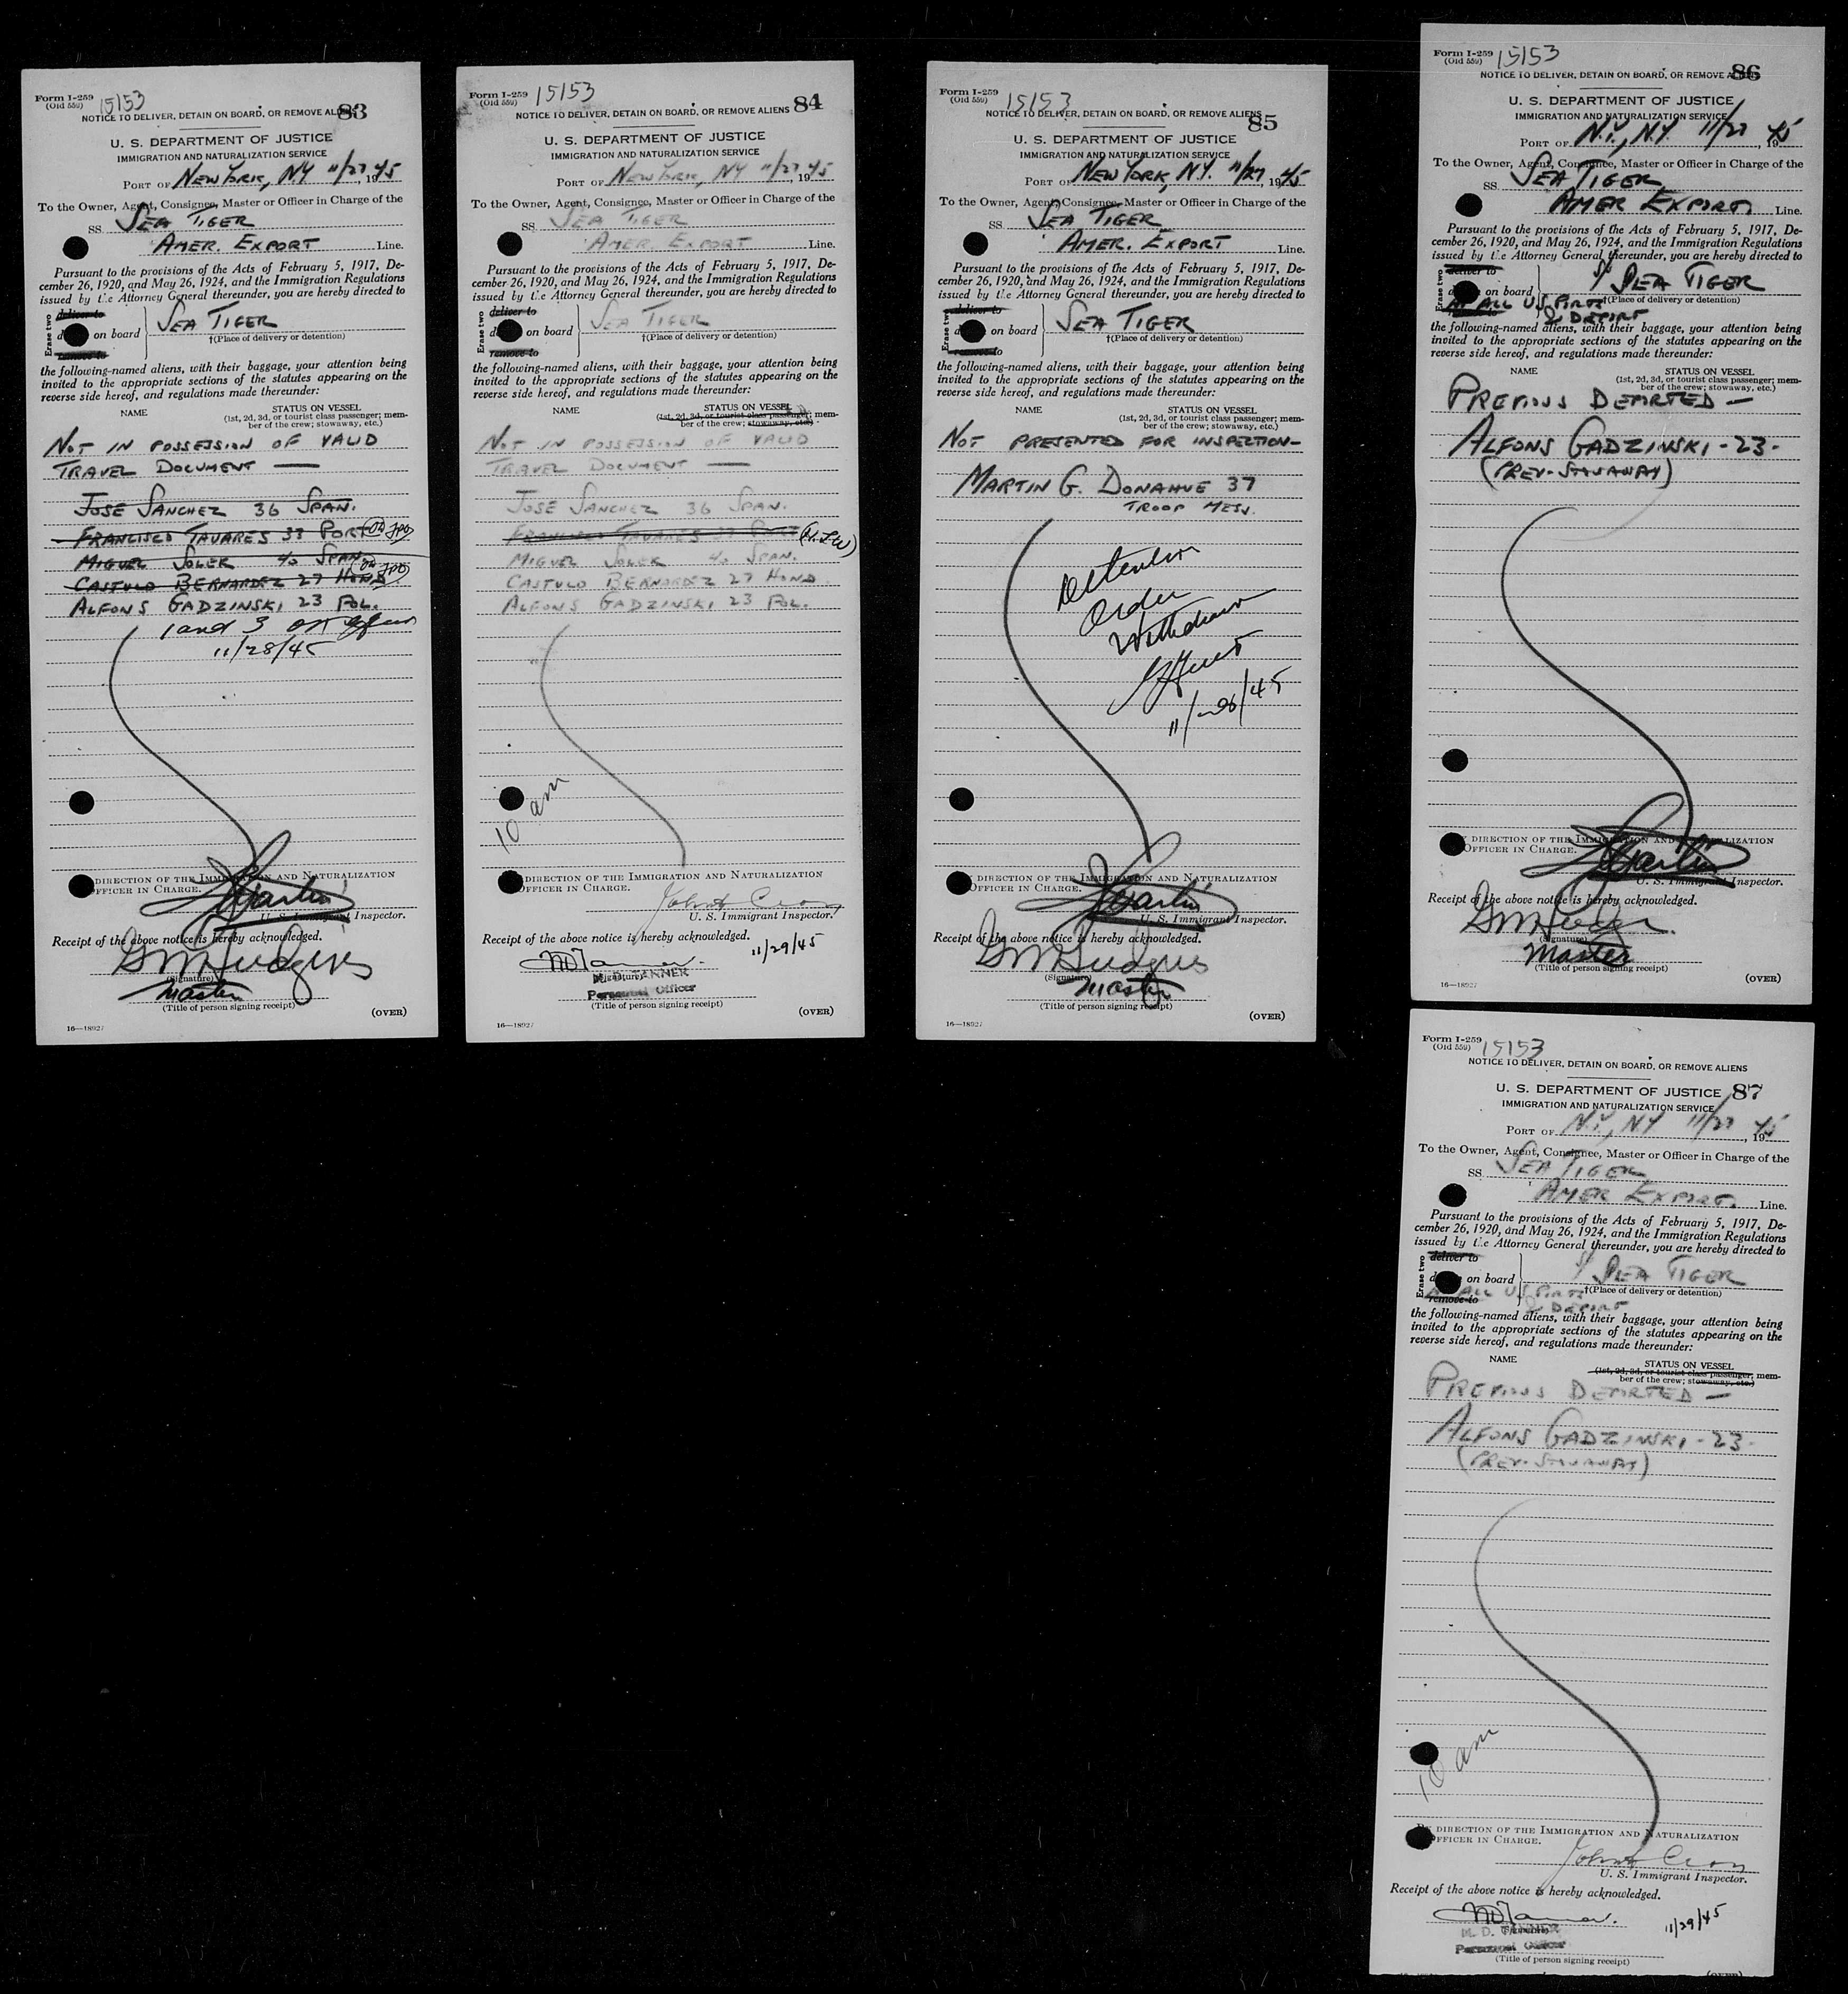 Form I-259
(Old 559) 15153
NOTICE TO DELIVER, DETAIN ON BOARD, OR REMOVE ALIENS 83
U. S. DEPARTMENT OF JUSTICE
IMMIGRATION AND NATURALIZATION SERVICE
PORT OF NEW YORK, NY 11/27, 1945
To the Owner, Agent, Consignee, Master or Officer in Charge of the
SS. SEA TIGER
AMER. EXPORT Line.
Pursuant to the provisions of the Acts of February 5, 1917, De-
cember 26, 1920, and May 26, 1924, and the Immigration Regulations
issued by the Attorney General thereunder, you are hereby directed to
Erase two
deliver to
on board SEA TIGER
†(Place of delivery or detention)
remove to
the following-named aliens, with their baggage, your attention being
invited to the appropriate sections of the statutes appearing on the
reverse side hereof, and regulations made thereunder:
NAME STATUS ON VESSEL
(1st, 2d, 3d, or tourist class passenger; mem-
ber of the crew; stowaway, etc.)
NOT IN POSSESSION OF VALID
TRAVEL DOCUMENT —
JOSE SANCHEZ 36 SPAN.
FRANCISCO TAVARES 33 PORT
MIGUEL SOLER 40 SPAN.
CASTULO BERNARDEZ 27 HOND.
ALFONS GADZINSKI 23 POL.
1 and 3 OK
11/28/45
DIRECTION OF THE IMMIGRATION AND NATURALIZATION
OFFICER IN CHARGE.
U. S. Immigrant Inspector.
Receipt of the above notice is hereby acknowledged.
(Signature)
Master
(Title of person signing receipt)
(OVER)
16—18927
Form I-259
(Old 559) 15153
NOTICE TO DELIVER, DETAIN ON BOARD, OR REMOVE ALIENS 84
U. S. DEPARTMENT OF JUSTICE
IMMIGRATION AND NATURALIZATION SERVICE
PORT OF NEW YORK, NY 11/27, 1945
To the Owner, Agent, Consignee, Master or Officer in Charge of the
SS. SEA TIGER
AMER. EXPORT Line.
Pursuant to the provisions of the Acts of February 5, 1917, De-
cember 26, 1920, and May 26, 1924, and the Immigration Regulations
issued by the Attorney General thereunder, you are hereby directed to
Erase two
deliver to
on board SEA TIGER
†(Place of delivery or detention)
remove to
the following-named aliens, with their baggage, your attention being
invited to the appropriate sections of the statutes appearing on the
reverse side hereof, and regulations made thereunder:
NAME STATUS ON VESSEL
(1st, 2d, 3d, or tourist class passenger; mem-
ber of the crew; stowaway, etc.)
NOT IN POSSESSION OF VALID
TRAVEL DOCUMENT —
JOSE SANCHEZ 36 SPAN.
FRANCISCO TAVARES 33 PORT
MIGUEL SOLER 40 SPAN.
CASTULO BERNARDEZ 27 HOND.
ALFONS GADZINSKI 23 POL.
10 am
DIRECTION OF THE IMMIGRATION AND NATURALIZATION
OFFICER IN CHARGE.
U. S. Immigrant Inspector.
Receipt of the above notice is hereby acknowledged.
11/29/45
(Signature)
M. D. TANNER
Personnel Officer
(Title of person signing receipt)
(OVER)
16—18927
Form I-259
(Old 559) 15153
NOTICE TO DELIVER, DETAIN ON BOARD, OR REMOVE ALIENS 85
U. S. DEPARTMENT OF JUSTICE
IMMIGRATION AND NATURALIZATION SERVICE
PORT OF NEW YORK, NY. 11/27, 1945
To the Owner, Agent, Consignee, Master or Officer in Charge of the
SS. SEA TIGER
AMER. EXPORT Line.
Pursuant to the provisions of the Acts of February 5, 1917, De-
cember 26, 1920, and May 26, 1924, and the Immigration Regulations
issued by the Attorney General thereunder, you are hereby directed to
Erase two
deliver to
on board SEA TIGER
†(Place of delivery or detention)
remove to
the following-named aliens, with their baggage, your attention being
invited to the appropriate sections of the statutes appearing on the
reverse side hereof, and regulations made thereunder:
NAME STATUS ON VESSEL
(1st, 2d, 3d, or tourist class passenger; mem-
ber of the crew; stowaway, etc.)
NOT PRESENTED FOR INSPECTION—
MARTIN G. DONAHUE 37
TROOP MESS.
Detention
Order
Withdrawn
11/28/45
DIRECTION OF THE IMMIGRATION AND NATURALIZATION
OFFICER IN CHARGE.
U. S. Immigrant Inspector.
Receipt of the above notice is hereby acknowledged.
(Signature)
Master
(Title of person signing receipt)
(OVER)
16—18927
Form I-259
(Old 559) 15153
NOTICE TO DELIVER, DETAIN ON BOARD, OR REMOVE ALIENS 86
U. S. DEPARTMENT OF JUSTICE
IMMIGRATION AND NATURALIZATION SERVICE
PORT OF N.Y., N.Y. 11/27, 1945
To the Owner, Agent, Consignee, Master or Officer in Charge of the
SS. SEA TIGER
AMER EXPORT Line.
Pursuant to the provisions of the Acts of February 5, 1917, De-
cember 26, 1920, and May 26, 1924, and the Immigration Regulations
issued by the Attorney General thereunder, you are hereby directed to
Erase two
deliver to
on board SEA TIGER
†(Place of delivery or detention)
AT ALL US PORTS
& DEPORT
the following-named aliens, with their baggage, your attention being
invited to the appropriate sections of the statutes appearing on the
reverse side hereof, and regulations made thereunder:
NAME STATUS ON VESSEL
(1st, 2d, 3d, or tourist class passenger; mem-
ber of the crew; stowaway, etc.)
PREVIOUS DEPORTED —
ALFONS GADZINSKI - 23 -
(PREV. STOWAWAY)
DIRECTION OF THE IMMIGRATION AND NATURALIZATION
OFFICER IN CHARGE.
U. S. Immigrant Inspector.
Receipt of the above notice is hereby acknowledged.
(Signature)
Master
(Title of person signing receipt)
(OVER)
16—18927
Form I-259
(Old 559) 15153
NOTICE TO DELIVER, DETAIN ON BOARD, OR REMOVE ALIENS
U. S. DEPARTMENT OF JUSTICE 87
IMMIGRATION AND NATURALIZATION SERVICE
PORT OF N.Y., NY 11/27, 1945
To the Owner, Agent, Consignee, Master or Officer in Charge of the
SS. SEA TIGER
AMER EXPORT. Line.
Pursuant to the provisions of the Acts of February 5, 1917, De-
cember 26, 1920, and May 26, 1924, and the Immigration Regulations
issued by the Attorney General thereunder, you are hereby directed to
Erase two
deliver to
on board SEA TIGER
†(Place of delivery or detention)
AT ALL US PORTS
remove to
& DEPORT
the following-named aliens, with their baggage, your attention being
invited to the appropriate sections of the statutes appearing on the
reverse side hereof, and regulations made thereunder:
NAME STATUS ON VESSEL
(1st, 2d, 3d, or tourist class passenger; mem-
ber of the crew; stowaway, etc.)
PREVIOUS DEPORTED —
ALFONS GADZINSKI - 23 -
(PREV. STOWAWAY)
10 am
BY DIRECTION OF THE IMMIGRATION AND NATURALIZATION
OFFICER IN CHARGE.
U. S. Immigrant Inspector.
Receipt of the above notice is hereby acknowledged.
11/29/45
M. D. TANNER
Personnel Officer
(Title of person signing receipt)
(OVER)